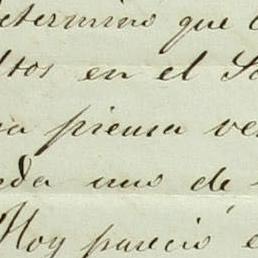 determino que
ltos en el Sa
a piensa ve
da uno de
Hoy parecio e